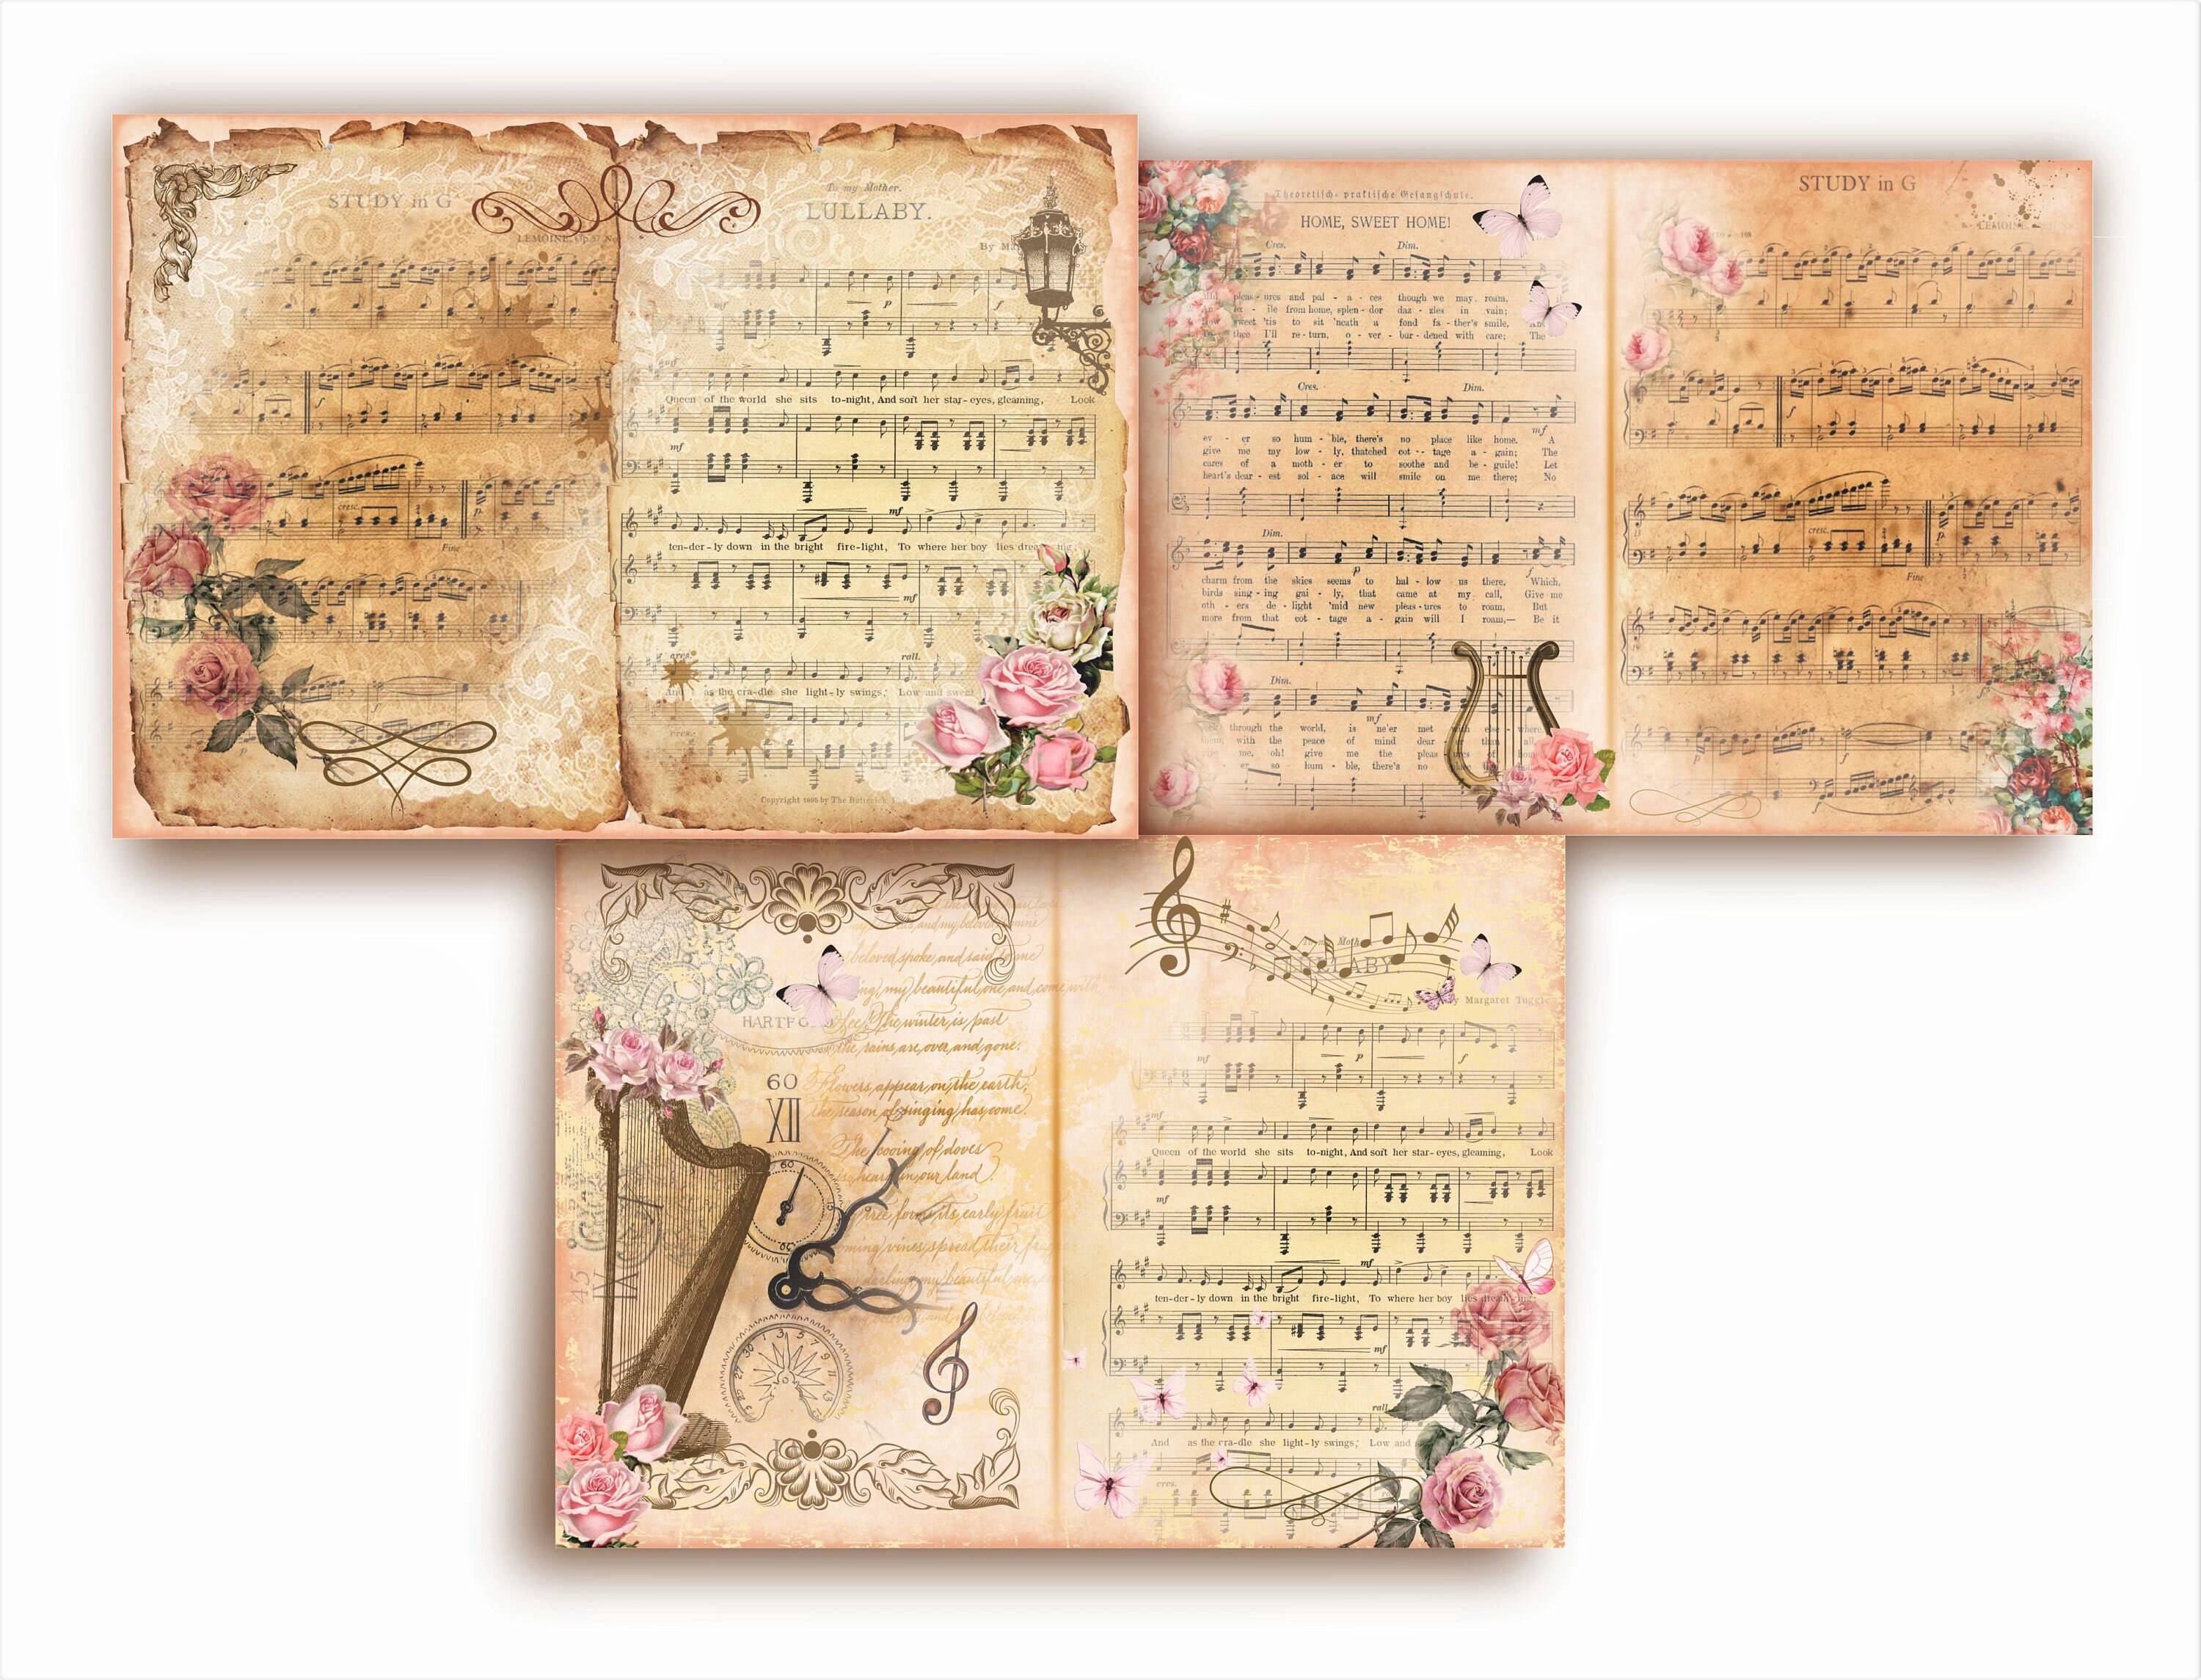 STUDY in G
LEMOINE. Op.37
cresc.
Fine
p
To my Mother.
LULLABY.
By
mf
p
f
Queen of the world she sits to-night, And soft her star-eyes, gleaming, Look
mf
mf
ten-der-ly down in the bright fire-light, To where her boy lies
mf
cres. rall.
And as the cra-dle she light-ly swings; Low and sweet
cres.
Copyright 1895 by The
Theoretisch-praktische Gesangschule.
HOME, SWEET HOME!
Cres. Dim.
pleas-ures and pal-a-ces though we may roam,
ex-ile from home, splen-dor daz-zles in vain; An
How sweet 'tis to sit 'neath a fond fa-ther's smile, And
thee I'll re-turn, o-ver-bur-dened with care; The
Cres. Dim.
mf
ev-er so hum-ble, there's no place like home. A
give me my low-ly, thatched cot-tage a-gain; The
cares of a moth-er to soothe and be-guile! Let
heart's dear-est sol-ace will smile on me there; No
Dim.
p f
charm from the skies seems to hal-low us there, Which,
birds sing-ing gai-ly, that came at my call, Give me
oth-ers de-light 'mid new pleas-ures to roam, But
more from that cot-tage a-gain will I roam,— Be it
Dim.
mf
through the world, is ne'er met with else-where.
them, with the peace of mind dear-er than all.
me, oh! give me the pleas-ures of home
er so hum-ble, there's no place
STUDY in G
LEMOINE.
p
f
cresc.
p.
Fine
f
and my beloved mine
beloved spoke, and said to me
my beautiful one, and come with
HARTFO
The winter is past
the rains are over and gone.
60
Flowers appear on the earth;
XII
the season of singing has come.
The cooing of doves
is heard in our land.
60
tree forms its early fruit
vines spread their
15
IX
darling, my beautiful one,
30 1 3 5 7 9 11 13
To my Moth
LULLABY
y Margaret Tuggle
mf
p
f
mf
Queen of the world she sits to-night, And soft her star-eyes, gleaming, Look
mf
mf
ten-der-ly down in the bright fire-light, To where her boy lies dream-ing;
mf
rall.
And as the cra-dle she light-ly swings; Low and
cres.